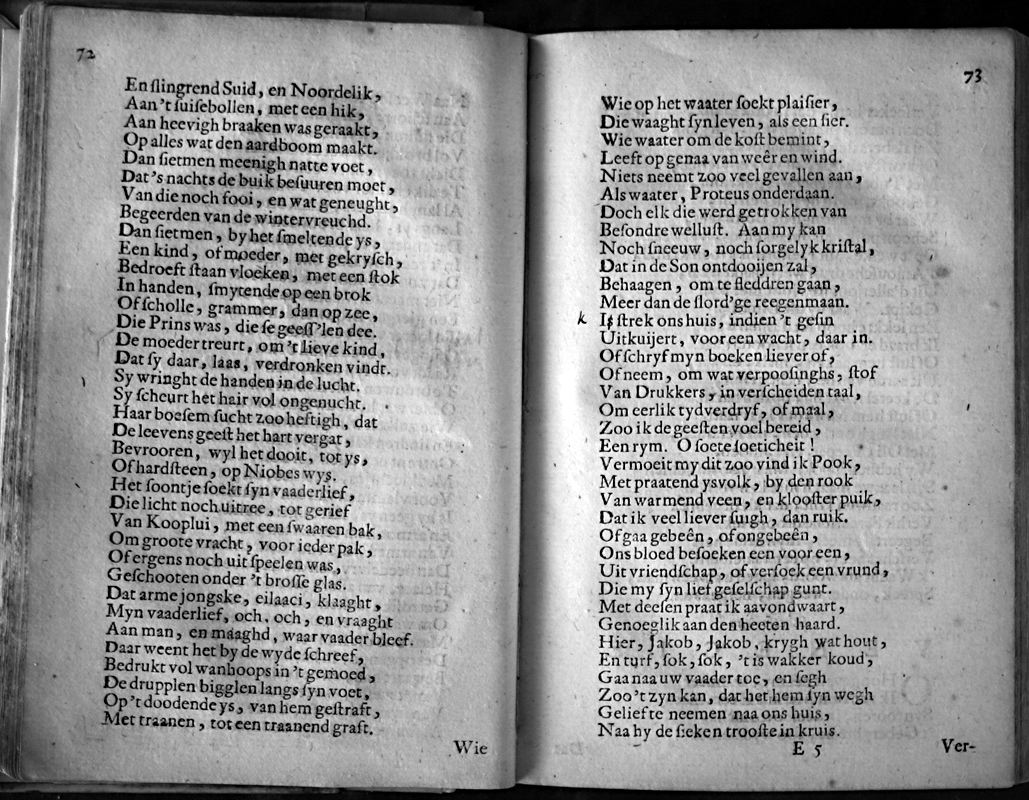 72
En slingrend Suid, en Noordelik,
Aan 't suisebollen, met een hik,
Aan heevigh braaken was geraakt,
Op alles wat den aardboom maakt.
Dan sietmen meenigh natte voet,
Dat 's nachts de buik besuuren moet,
Van die noch fooi, en wat geneught,
Begeerden van de wintervreuchd.
Dan sietmen, by het smeltende ys,
Een kind, of moeder, met gekrysch,
Bedroeft staan vloeken, met een stok
In handen, smytende op een brok
Of scholle, grammer, dan op zee,
Die Prins was, die se geess'len dee.
De moeder treurt, om 't lieve kind,
Dat sy daar, laas, verdronken vindt.
Sy wringht de handen in de lucht.
Sy scheurt het hair vol ongenucht.
Haar boesem sucht zoo heftigh, dat
De leevens geest het hart vergat,
Bevrooren, wyl het dooit, tot ys,
Of hardsteen, op Niobes wys.
Het soontje soekt syn vaaderlief,
Die licht noch uitree, tot gerief
Van Kooplui, met een swaaren bak,
Om groote vracht, voor ieder pak,
Of ergens noch uit speelen was,
Geschooten onder 't brosse glas.
Dat arme jongske, eilaaci, klaaght,
Myn vaaderlief, och, och, en vraaght
Aan man, en maaghd, waar vaader bleef.
Daar weent het by de wyde schreef,
Bedrukt vol wanhoops in 't gemoed,
De drupplen bigglen langs syn voet,
Op 't doodende ys, van hem gestraft,
Met traanen, tot een traanend graft.
Wie
73
Wie op het waater soekt plaisier,
Die waaght syn leven, als een sier.
Wie waater om de kost bemint,
Leeft op genaa van weêr en wind.
Niets neemt zoo veel gevallen aan,
Als waater, Proteus onderdaan.
Doch elk die werd getrokken van
Besondre wellust. Aan my kan
Noch sneeuw, noch sorgelyk kristal,
Dat in de Son ontdooijen zal,
Behaagen, om te fleddren gaan,
Meer dan de slord'ge reegenmaan.
k Is strek ons huis, indien 't gesin
Uitkuijert, voor een wacht, daar in.
Of schryf myn boeken liever of,
Of neem, om wat verpoosinghs, stof
Van Drukkers, in verscheiden taal,
Om eerlik tydverdryf, of maal,
Zoo ik de geesten voel bereid,
Een rym. O soete soeticheit!
Vermoeit my dit zoo vind ik Pook,
Met praatend ysvolk, by den rook
Van warmend veen, en klooster puik,
Dat ik veel liever suigh, dan ruik.
Of gaa gebeên, of ongebeên,
Ons bloed besoeken een voor een,
Uit vriendschap, of versoek een vrund,
Die my syn lief geselschap gunt.
Met deesen praat ik aavondwaart,
Genoeglik aan den heeten haard.
Hier, Jakob, Jakob, krygh wat hout,
En turf, sok, sok, 't is wakker koud,
Gaa naa uw vaader toe, en segh
Zoo 't zyn kan, dat het hem syn wegh
Geliefte neemen naa ons huis,
Naa hy de sieken trooste in kruis.
E 5
Ver-